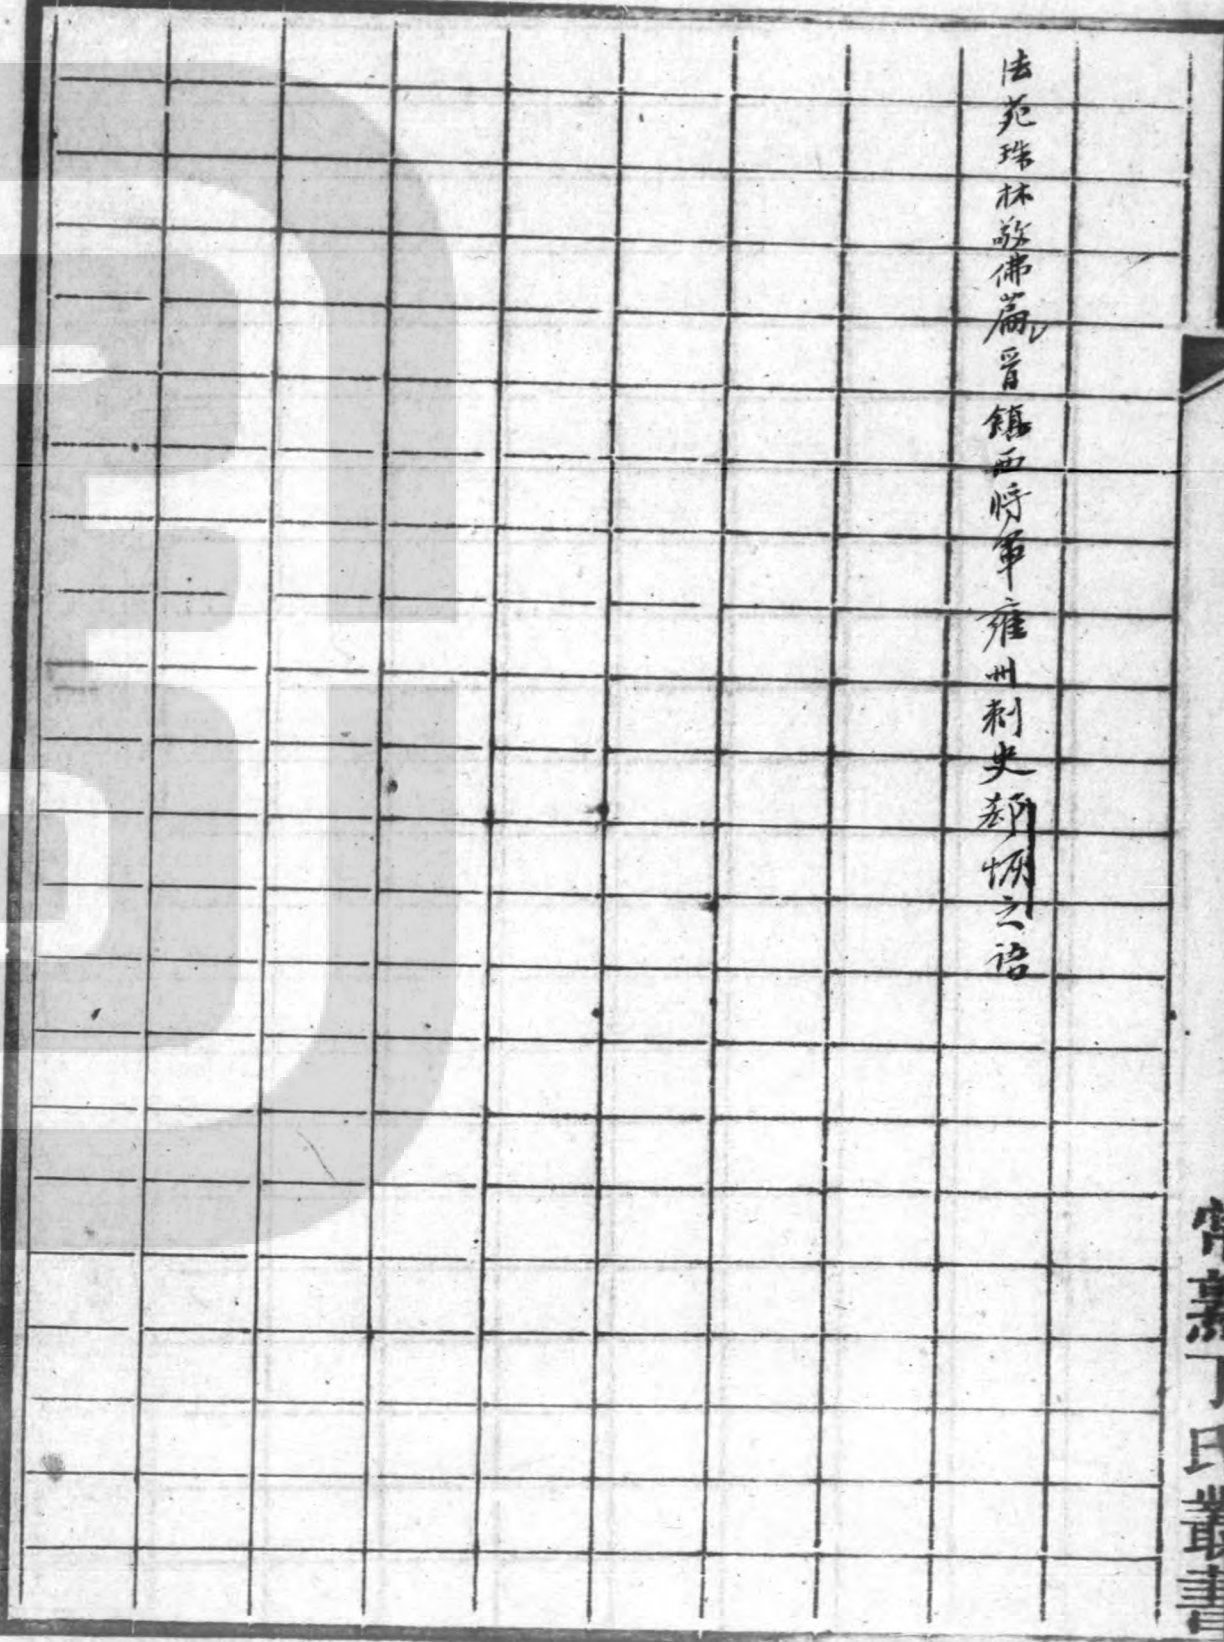 法苑珠林敬佛篇晉鎮西將軍雍州刺史郗恢云語
常熟丁氏叢書